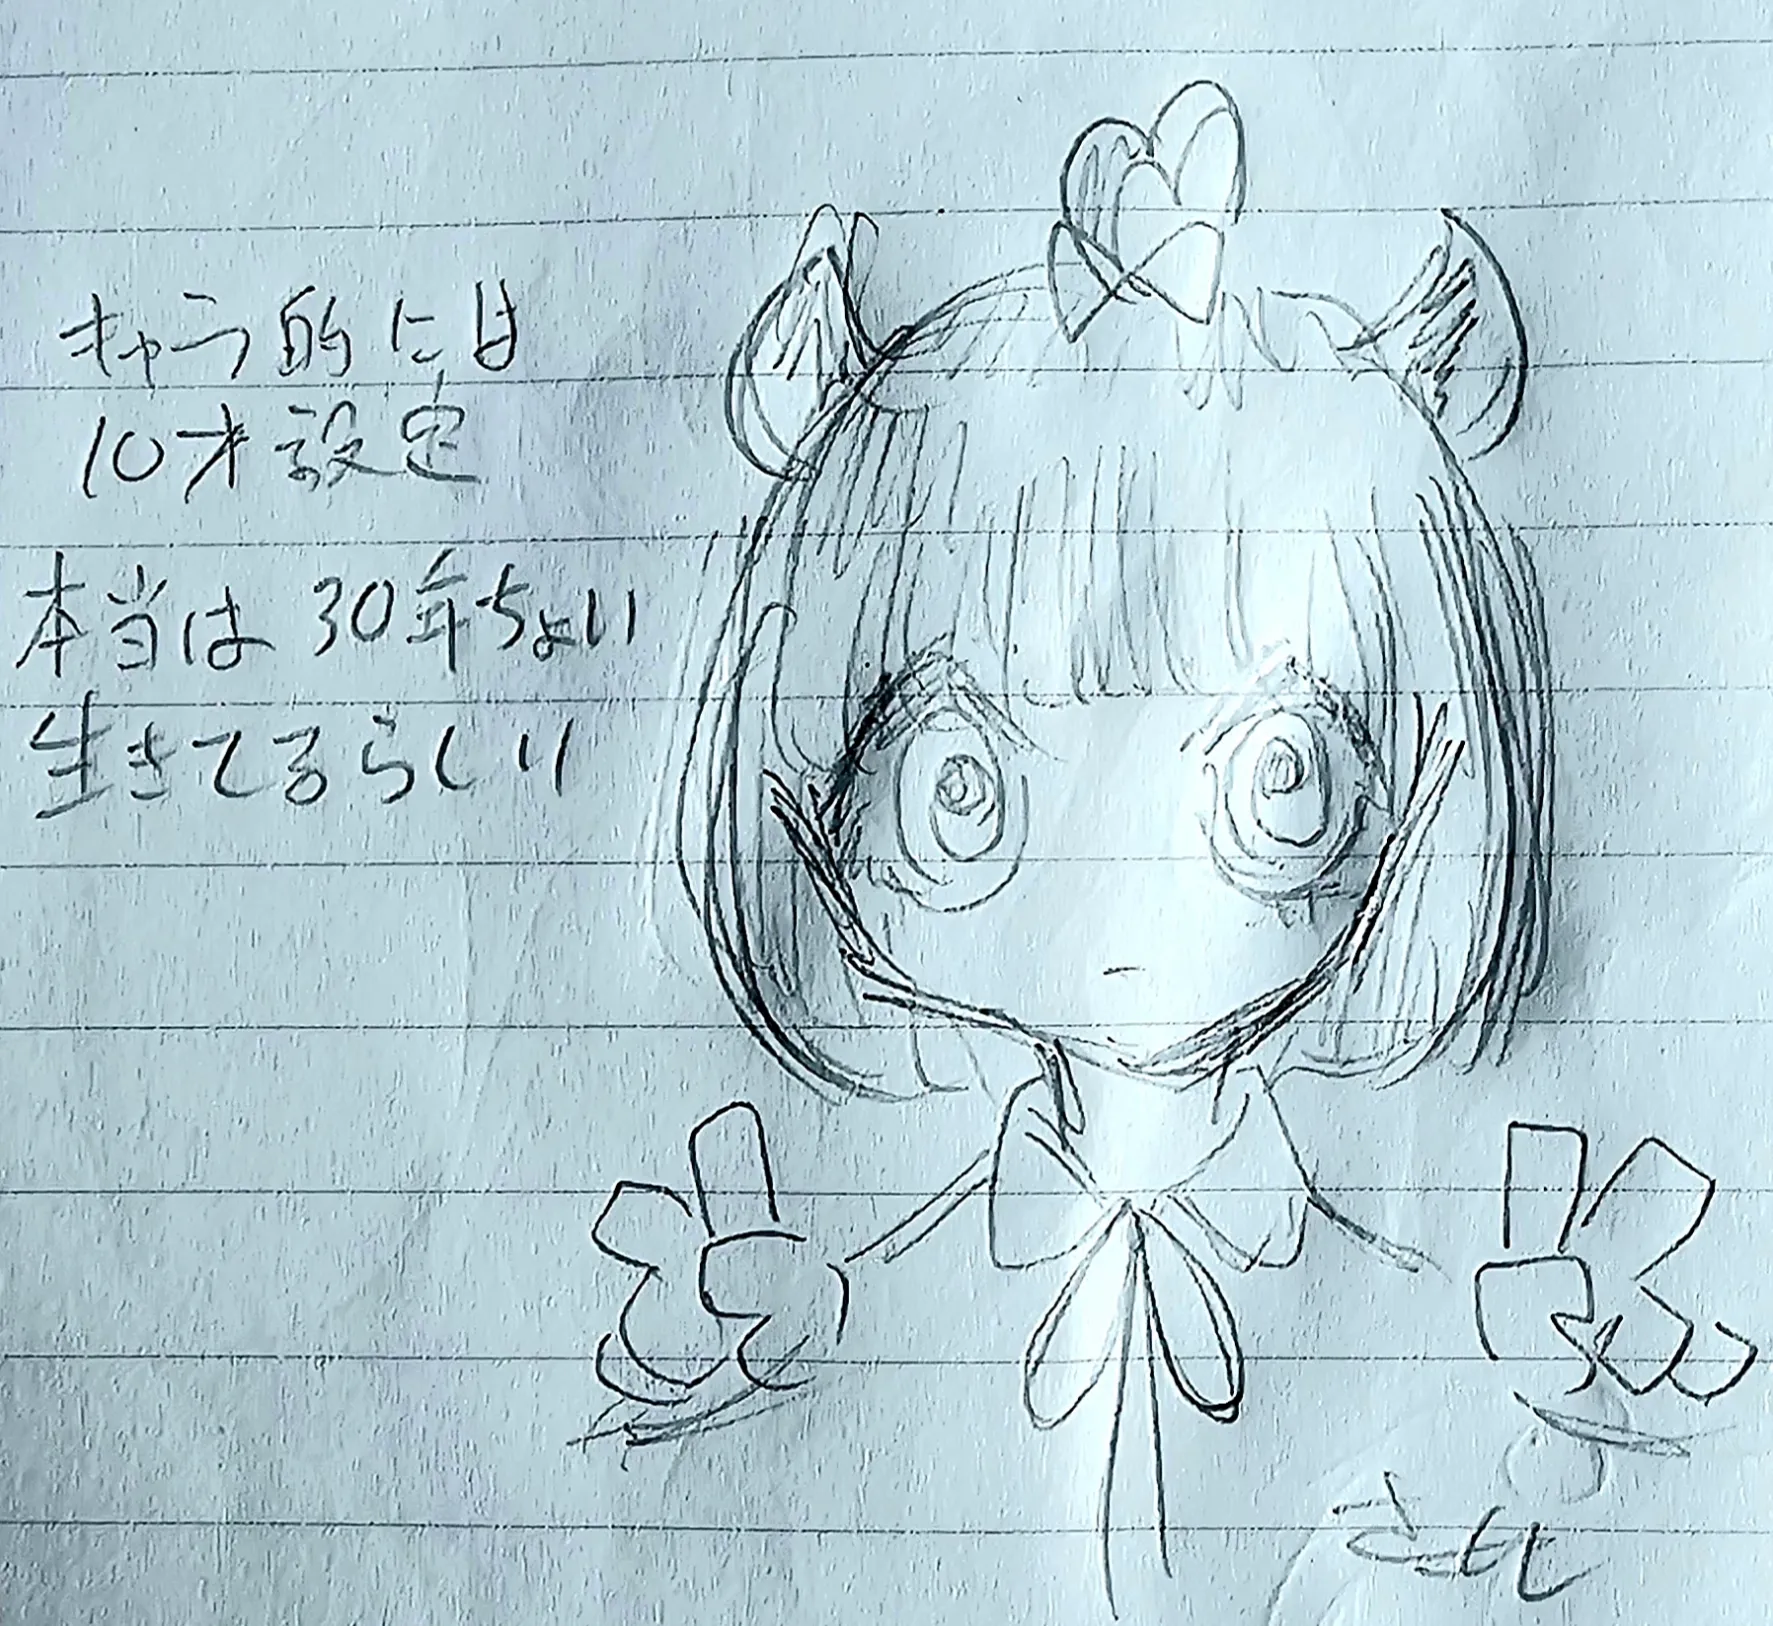 キャラ的には
10才設定
本当は30年ちょい
生きてるらしい